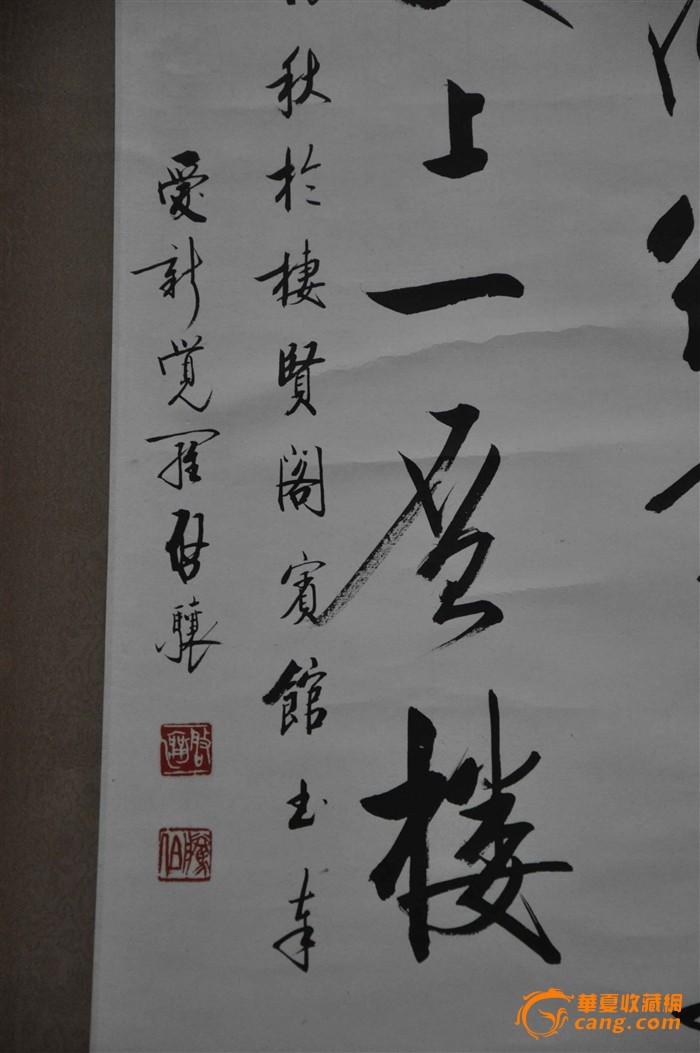 上一层楼
秋於棲賢阁賓館书奉
爱新觉羅启驤
華夏收藏網
cang.com